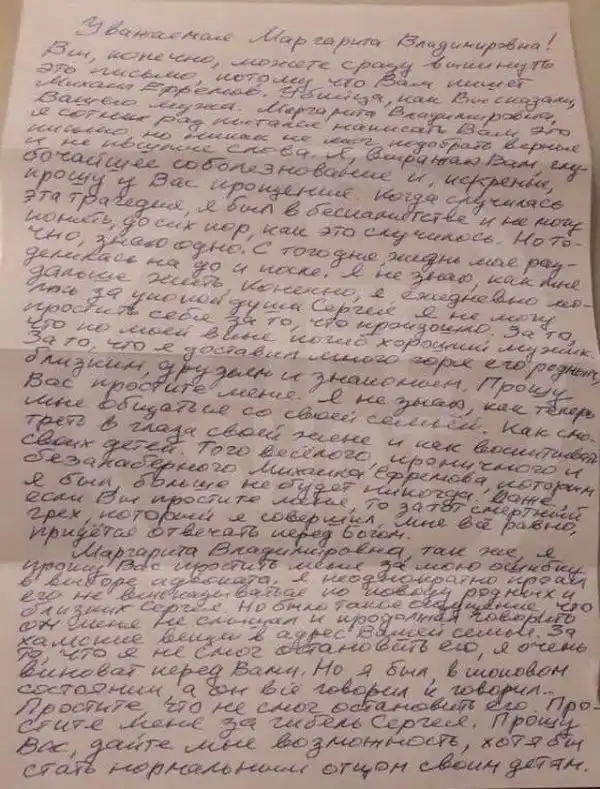 Уважаемая Маргарита Владимировна!
Вы, конечно, можете сразу выкинуть
это письмо, потому что Вам пишет
Михаил Ефремов. Убийца, как Вы сказали,
Вашего мужа. Маргарита Владимировна,
я сотни раз пытался написать Вам это
письмо, но никак не мог подобрать верные
и не пышные слова. Я, выражаю Вам, глу-
бочайшее соболезнование и, искренне,
прошу у Вас прощение. Когда случилась
эта трагедия, я был в беспамятстве и не могу
понять, до сих пор, как это случилось. Но то-
чно, знаю одно. С того дня, жизнь моя раз-
делилась на до и после. Я не знаю, как мне
дальше жить, конечно, я ежедневно мо-
люсь за упокой души Сергея. Я не могу
простить себя за то, что произошло. За то,
что по моей вине погиб хороший мужик.
За то, что я доставил много горя его родным,
близким, друзьям и знакомым. Прошу
Вас простите меня. Я не знаю, как теперь
мне общаться со своей семьёй. Как смо-
треть в глаза своей жене и как воспитывать
своих детей. Того весёлого, ироничного и
безалаберного Михаила Ефремова, которым
я был, больше не будет никогда. Даже
если Вы простите меня, то за тот смертный
грех, который я совершил, мне всё равно,
придётся отвечать перед Богом.
Маргарита Владимировна, так же, я
прошу Вас простить меня за мою ошибку
в выборе адвоката. Я неоднократно просил
его не высказываться по поводу родных и
близких Сергея. Но было такое ощущение, что
он меня не слышал и продолжал говорить
хамские вещи в адрес Вашей семьи. За
то, что я не смог остановить его, я очень
виноват перед Вами. Но я был, в шоковом
состоянии, а он всё говорил и говорил..
Простите, что не смог остановить его. Про-
стите меня за гибель Сергея. Прошу
Вас, дайте мне возможность, хотя бы
стать нормальным отцом своим детям.